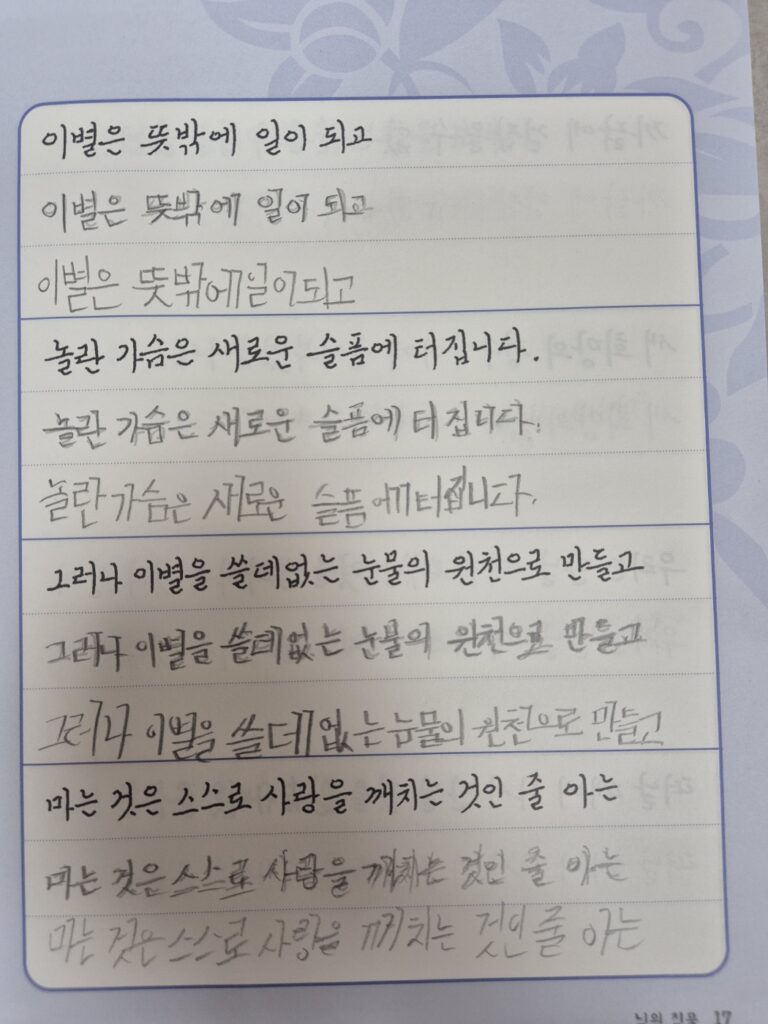 이별은 뜻밖에 일이 되고
이별은 뜻밖에 일이 되고
이별은 뜻밖에 일이 되고
놀란 가슴은 새로운 슬픔에 터집니다.
놀란 가슴은 새로운 슬픔에 터집니다.
놀란 가슴은 새로운 슬픔에 터집니다.
그러나 이별을 쓸데없는 눈물의 원천으로 만들고
그러나 이별을 쓸데없는 눈물의 원천으로 만들고
그러나 이별을 쓸데없는 눈물의 원천으로 만들고
마는 것은 스스로 사랑을 깨치는 것인 줄 아는
마는 것은 스스로 사랑을 깨치는 것인 줄 아는
마는 것은 스스로 사랑을 깨치는 것인 줄 아는
님의 침묵 17